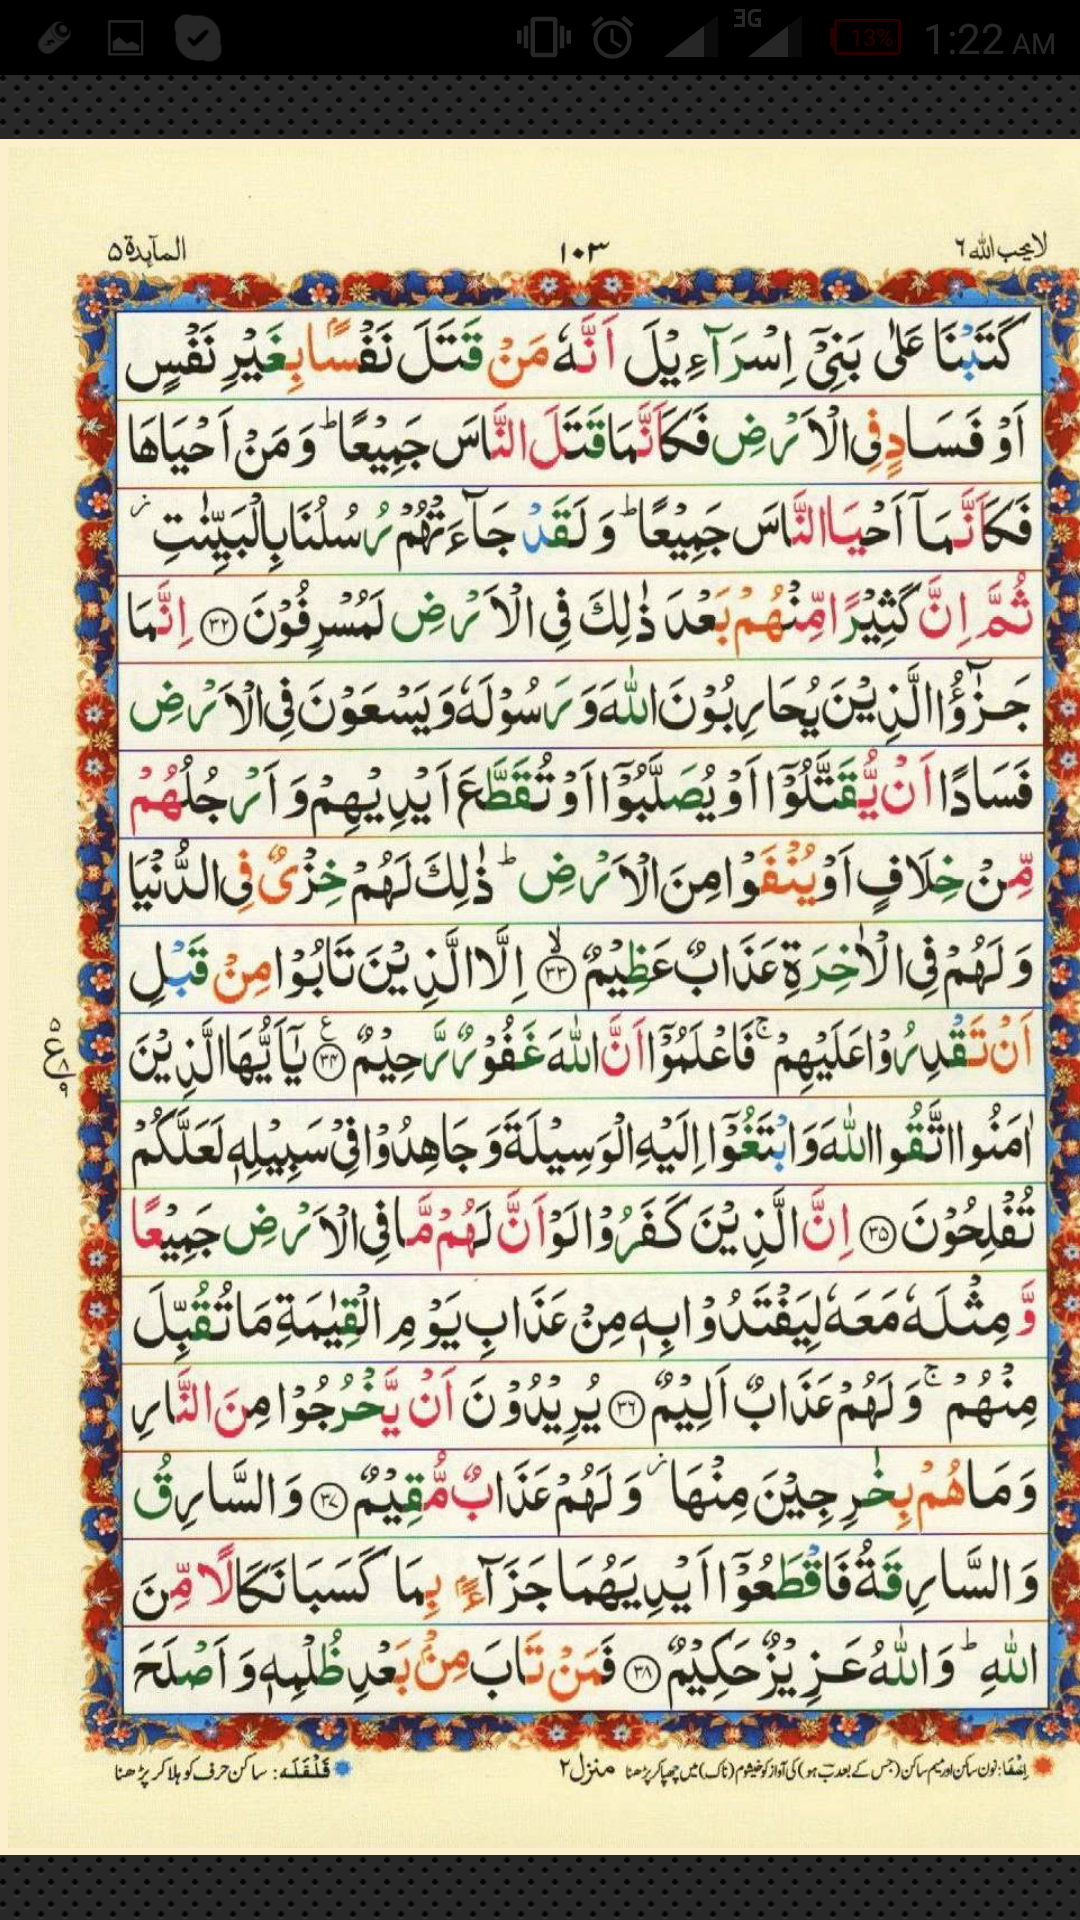 3G
13%
1:22 AM
لا يحب الله ٦
١٠٣
المآىِٕدة ٥
كَتَبْنَا عَلٰى بَنِیْۤ اِسْرَآءِیْلَ اَنَّهٗ مَنْ قَتَلَ نَفْسًۢا بِغَیْرِ نَفْسٍ
اَوْ فَسَادٍ فِی الْاَرْضِ فَكَاَنَّمَا قَتَلَ النَّاسَ جَمِیْعًا ؕ وَ مَنْ اَحْیَاهَا
فَكَاَنَّمَاۤ اَحْیَا النَّاسَ جَمِیْعًا ؕ وَ لَقَدْ جَآءَتْهُمْ رُسُلُنَا بِالْبَیِّنٰتِ ز
ثُمَّ اِنَّ كَثِیْرًا مِّنْهُمْ بَعْدَ ذٰلِكَ فِی الْاَرْضِ لَمُسْرِفُوْنَ ﴿٣٢﴾ اِنَّمَا
جَزٰٓؤُا الَّذِیْنَ یُحَارِبُوْنَ اللّٰهَ وَ رَسُوْلَهٗ وَ یَسْعَوْنَ فِی الْاَرْضِ
فَسَادًا اَنْ یُّقَتَّلُوْۤا اَوْ یُصَلَّبُوْۤا اَوْ تُقَطَّعَ اَیْدِیْهِمْ وَ اَرْجُلُهُمْ
مِّنْ خِلَافٍ اَوْ یُنْفَوْا مِنَ الْاَرْضِ ؕ ذٰلِكَ لَهُمْ خِزْیٌ فِی الدُّنْیَا
وَ لَهُمْ فِی الْاٰخِرَةِ عَذَابٌ عَظِیْمٌ ﴿٣٣﴾ ۙ اِلَّا الَّذِیْنَ تَابُوْا مِنْ قَبْلِ
اَنْ تَقْدِرُوْا عَلَیْهِمْ ۚ فَاعْلَمُوْۤا اَنَّ اللّٰهَ غَفُوْرٌ رَّحِیْمٌ ﴿٣٤﴾ ع یٰۤاَیُّهَا الَّذِیْنَ
٥ ع ٨ ٩
اٰمَنُوا اتَّقُوا اللّٰهَ وَ ابْتَغُوْۤا اِلَیْهِ الْوَسِیْلَةَ وَ جَاهِدُوْا فِیْ سَبِیْلِهٖ لَعَلَّكُمْ
تُفْلِحُوْنَ ﴿٣٥﴾ اِنَّ الَّذِیْنَ كَفَرُوْا لَوْ اَنَّ لَهُمْ مَّا فِی الْاَرْضِ جَمِیْعًا
وَّ مِثْلَهٗ مَعَهٗ لِیَفْتَدُوْا بِهٖ مِنْ عَذَابِ یَوْمِ الْقِیٰمَةِ مَا تُقُبِّلَ
مِنْهُمْ ۚ وَ لَهُمْ عَذَابٌ اَلِیْمٌ ﴿٣٦﴾ یُرِیْدُوْنَ اَنْ یَّخْرُجُوْا مِنَ النَّارِ
وَ مَا هُمْ بِخٰرِجِیْنَ مِنْهَا ز وَ لَهُمْ عَذَابٌ مُّقِیْمٌ ﴿٣٧﴾ وَ السَّارِقُ
وَ السَّارِقَةُ فَاقْطَعُوْۤا اَیْدِیَهُمَا جَزَآءًۢ بِمَا كَسَبَا نَكَالًا مِّنَ
اللّٰهِ ؕ وَ اللّٰهُ عَزِیْزٌ حَكِیْمٌ ﴿٣٨﴾ فَمَنْ تَابَ مِنْۢ بَعْدِ ظُلْمِهٖ وَ اَصْلَحَ
اِخفَا: نون ساکن اور میم ساکن (جس کے بعد ب ہو) کی آواز کو خیشوم (ناک) میں چھپا کر پڑھنا
منزل ٢
قَلْقَلَه: ساکن حرف کو ہلا کر پڑھنا